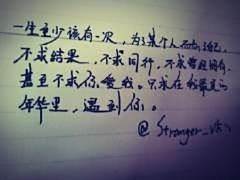 一生至少该有一次，为了某个人而忘了自己，
不求结果，不求同行，不求曾经拥有，
甚至不求你爱我。只求在我最美的
年华里，遇到你。
@ Stranger_